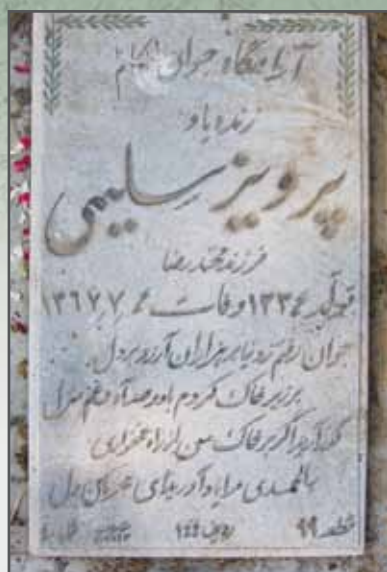 آرامگاه جوان ناکام
زنده یاد
پرویز سلیمی
فرزند محمدرضا
تولد ۱۳۳۴ وفات ۱۳۶۷٫۷٫
جوان رفتم ز دنیا با هزاران آرزو بر دل
بزیر خاک کردم با دو صد آه و غم منزل
گذارید اگر بر خاک من از راه غمخواری
با الحمدی مرا یاد آورید ای
قطعه ۹۹ ردیف ۱۴۴